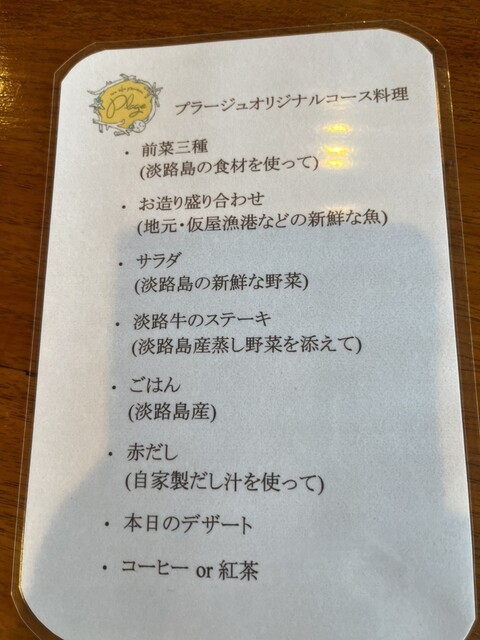 Plage
プラージュオリジナルコース料理
・ 前菜三種
(淡路島の食材を使って)
・ お造り盛り合わせ
(地元・仮屋漁港などの新鮮な魚)
・ サラダ
(淡路島の新鮮な野菜)
・ 淡路牛のステーキ
(淡路島産蒸し野菜を添えて)
・ ごはん
(淡路島産)
・ 赤だし
(自家製だし汁を使って)
・ 本日のデザート
・ コーヒー or 紅茶